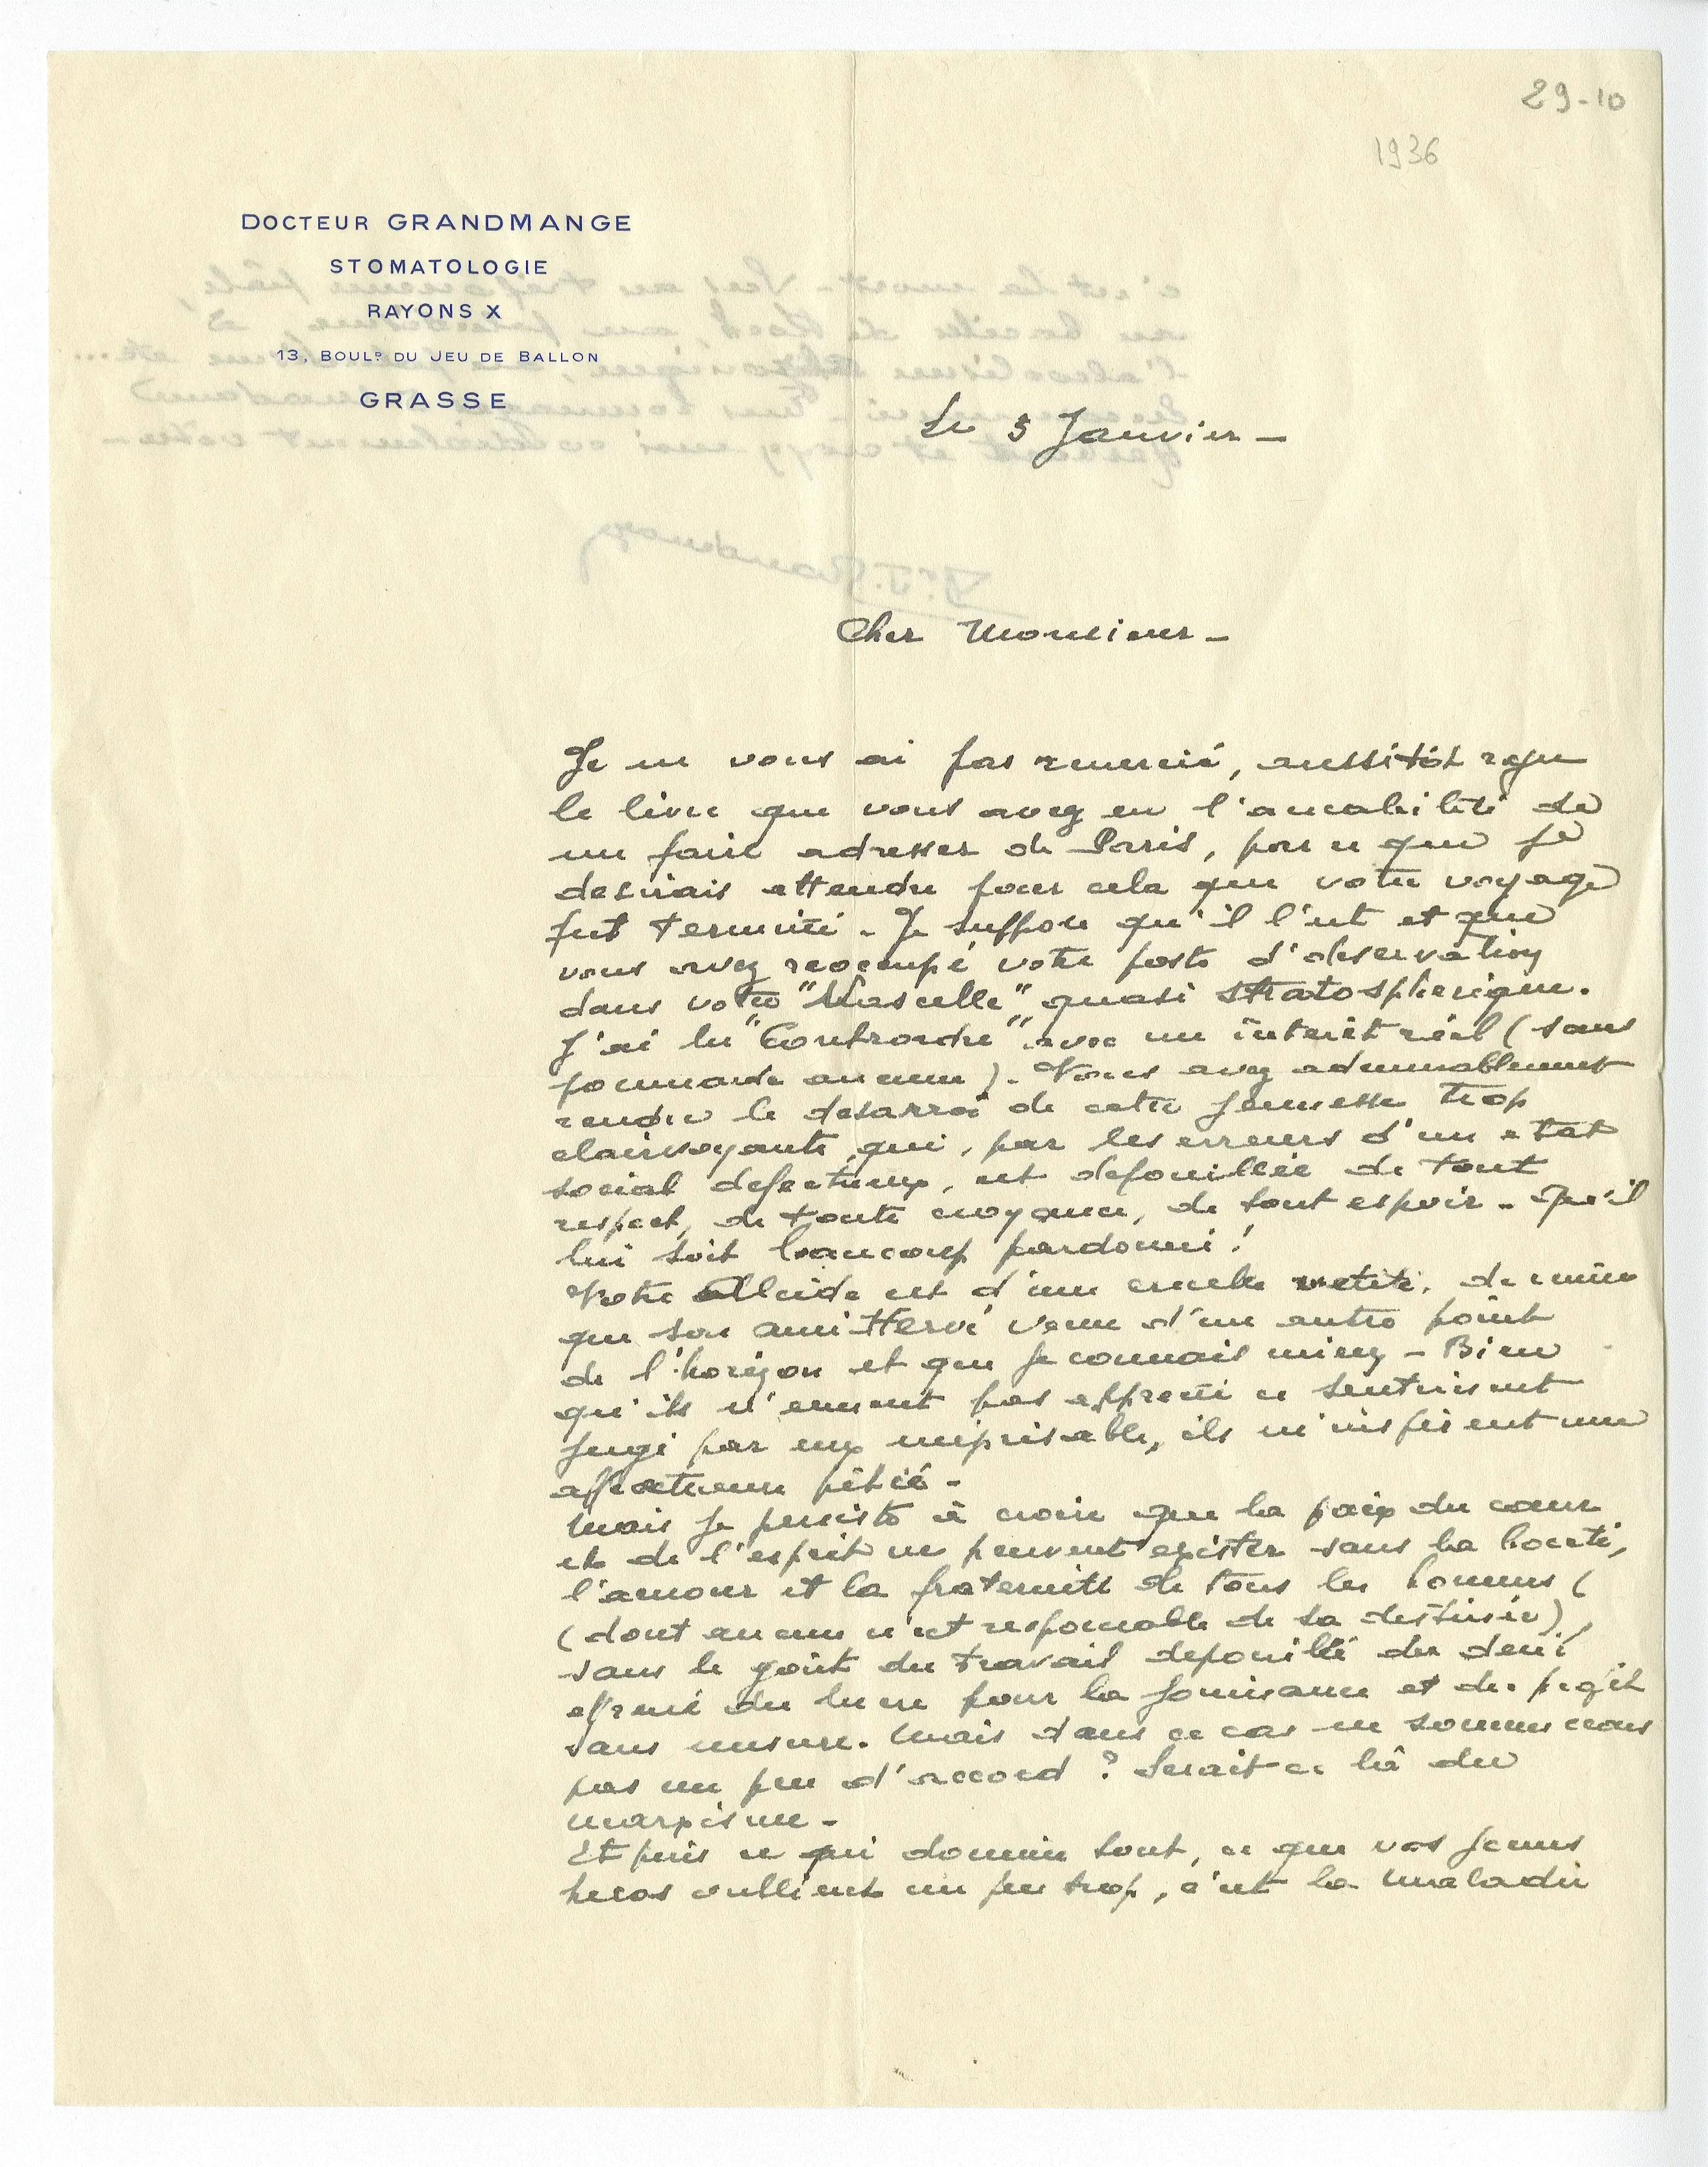 29-10
1936
DOCTEUR GRANDMANGE
STOMATOLOGIE
RAYONS X
13, BOULD DU JEU DE BALLON
GRASSE
Le 5 Janvier -
Cher Monsieur -
Je ne vous ai pas remercié, aussitôt reçu
le livre que vous avez eu l'amabilité de
me faire adresser de Paris, parce que je
desirais attendre pour cela que votre voyage
fut terminé - Je suppose qu'il l'est et que
vous avez reoccupé votre poste d'observation
dans votre "Nacelle" quasi stratospherique.
J'ai lu "Controrde" avec un interêt réel (sans
pommade aucune). Vous avez admirablement
rendu le desarroi de cette jeunesse trop
clairvoyante, qui, par les erreurs d'un etat
social defectueux, est depouillée de tout
respect, de toute croyance, de tout espoir - Qu'il
lui soit beaucoup pardonné!
Votre Alcide est d'une cruelle verité, de même
que son ami Hervé venu d'un autre point
de l'horizon et que je connais mieux - Bien
qu'ils n'eussent pas apprecié ce sentiment
jugé par eux méprisable, ils m'inspirent une
affectueuse pitié -
Mais je persiste à croire que la paix du cœur
et de l'esprit ne peuvent exister sans la bonté,
l'amour et la fraternité de tous les hommes (
(dont aucun n'est responsable de sa destinée),
sans le goût du travail depouillé du desir
effrené du lucre pour la jouissance et du profit
sans mesure. Mais dans ce cas ne sommes nous
pas un peu d'accord? Serait-ce là du
marxisme -
Et puis ce qui domine tout, ce que vos jeunes
heros oublient un peu trop, c'est la maladie